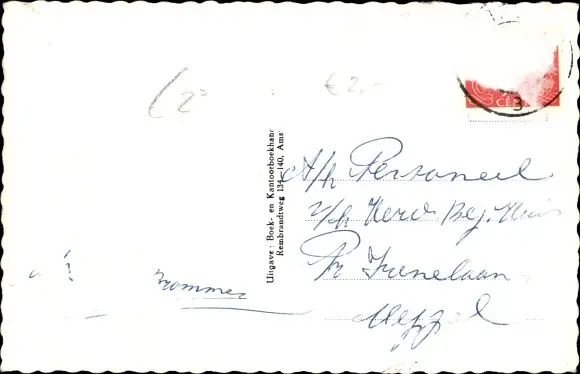 € 2=
€ 2,-
CENT
3
Uitgave: Boek- en Kantoorboekhand
Rembrandtweg 134-140, Ams
A/h Personeel
v/h Herv. Bej. Huis
Pr Irenelaan
Meppel